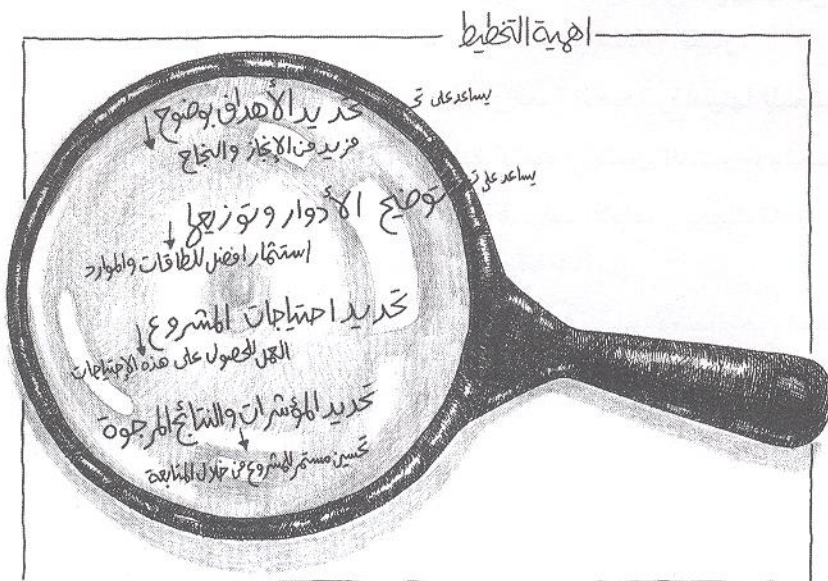 اهمية التخطيط
يساعد على تحديد الأهداف بوضوح
مزيد من الإنجاز والنجاح
يساعد على توضيح الأدوار وتوزيعها
استثمار افضل للطاقات والموارد
تحديد احتياجات المشروع
العمل للحصول على هذه الإحتياجات
تحديد المؤشرات والنتائج المرجوة
تحسين مستمر للمشروع من خلال المتابعة